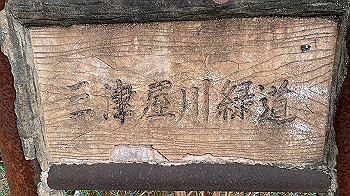 三津屋川緑道